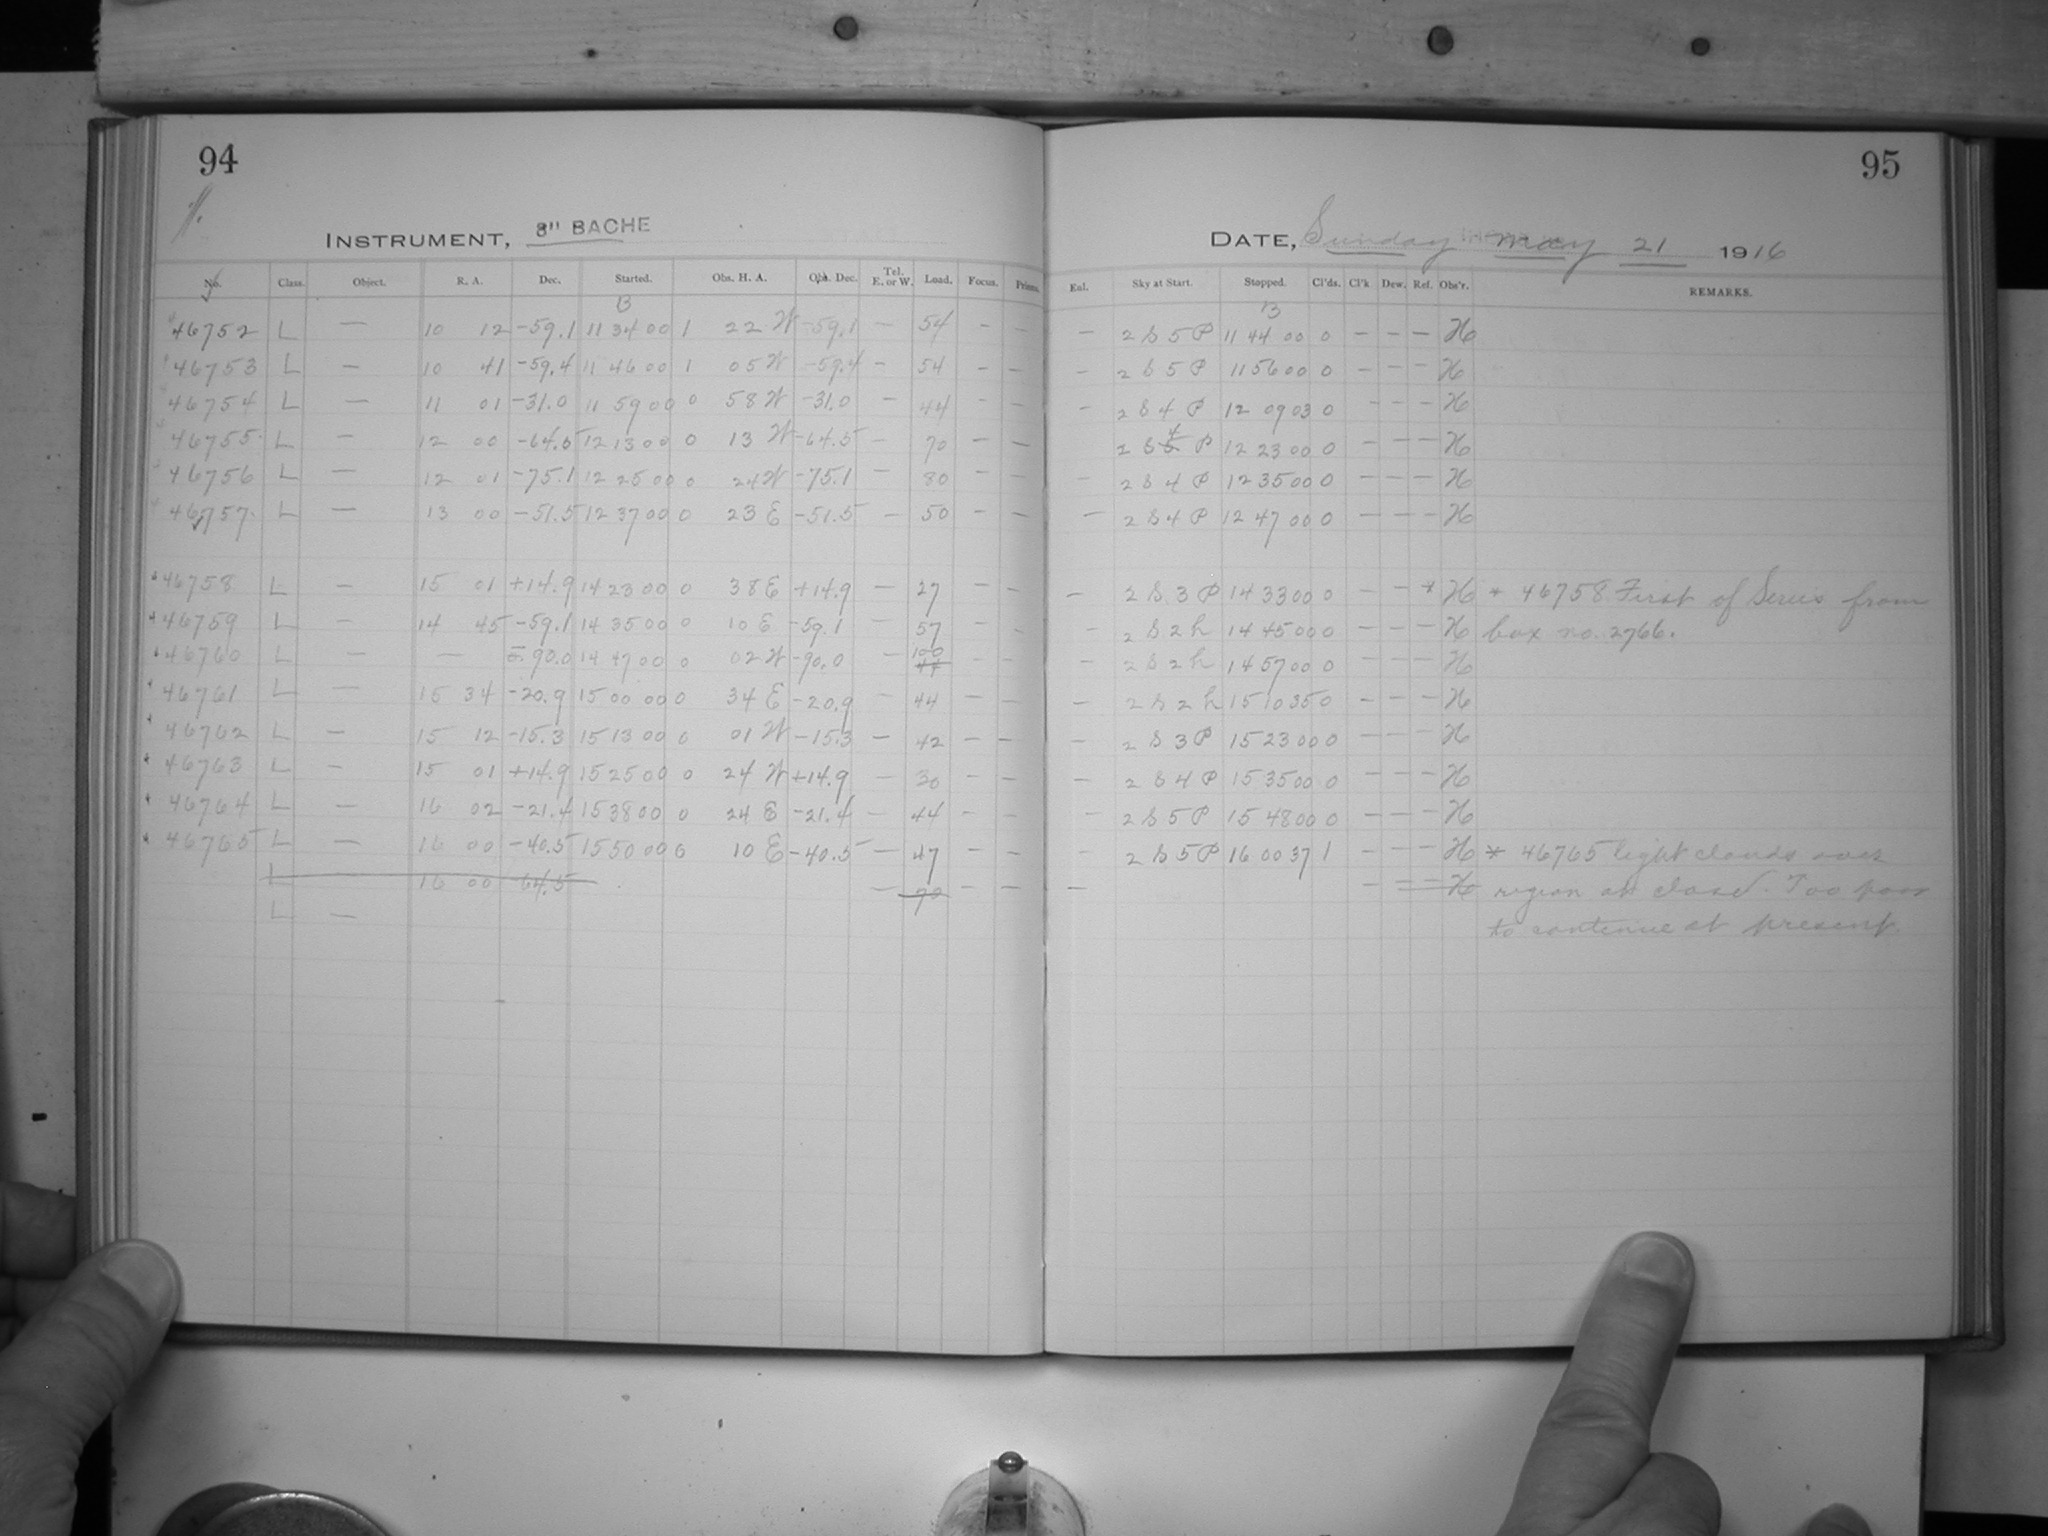 94
INSTRUMENT, 8" BACHE
No. Class. Object. R. A. Dec. Started. Obs. H. A. Obs. Dec. Tel. E. or W. Load. Focus. Prisms.
B
46752 L — 10 12 -59.1 11 34 00 1 22 W -59.1 — 54 — —
46753 L — 10 41 -59.4 11 46 00 1 05 W -59.4 — 54 — —
46754 L — 11 01 -31.0 11 59 00 0 58 W -31.0 — 44 — —
46755 L — 12 00 -64.5 12 13 00 0 13 W -64.5 — 70 — —
46756 L — 12 01 -75.1 12 25 00 0 24 W -75.1 80 — —
46757 L — 13 00 -51.5 12 37 00 0 23 E -51.5 — 50 — —
46758 L — 15 01 +14.9 14 23 00 0 38 E +14.9 — 27 — —
46759 L — 14 45 -59.1 14 35 00 0 10 E -59.1 57 — —
46760 L — — -90.0 14 47 00 0 02 W -90.0 — 100 44 — —
46761 L — 15 34 -20.9 15 00 00 0 34 E -20.9 — 44 — —
46762 L — 15 12 -15.3 15 13 00 0 01 W -15.3 — 42 — —
46763 L — 15 01 +14.9 15 25 00 0 24 W +14.9 — 30 — —
46764 L — 16 02 -21.4 15 38 00 0 24 E -21.4 — 44 — —
46765 L — 16 00 -40.5 15 50 00 0 10 E -40.5 — 47 — —
L 16 00 -64.5 — 70 — —
L —
95
DATE, Sunday May 21 1916
Enl. Sky at Start. Stopped. Cl'ds. Cl'k Dew. Ref. Obs'r. REMARKS.
B
— 2 S 5 P 11 44 00 0 — — — H
— 2 S 5 P 11 56 00 0 — — — H
— 2 S 4 P 12 09 03 0 — — — H
2 S 5 4 P 12 23 00 0 — — — H
— 2 S 4 P 12 35 00 0 — — — H
— 2 S 4 P 12 47 00 0 — — — H
— 2 S 3 P 14 33 00 0 — — * H * 46758 First of Series from
2 S 2 h 14 45 00 0 — — — H box no. 2766.
— 2 S 2 h 14 57 00 0 — — — H
— 2 S 2 h 15 10 35 0 — — — H
— 2 S 3 P 15 23 00 0 — — — H
— 2 S 4 P 15 35 00 0 — — — H
— 2 S 5 P 15 48 00 0 — — — H
— 2 S 5 P 16 00 37 1 — — — H * 46765 light clouds over
— — — — H region at close. Too poor
to continue at present.